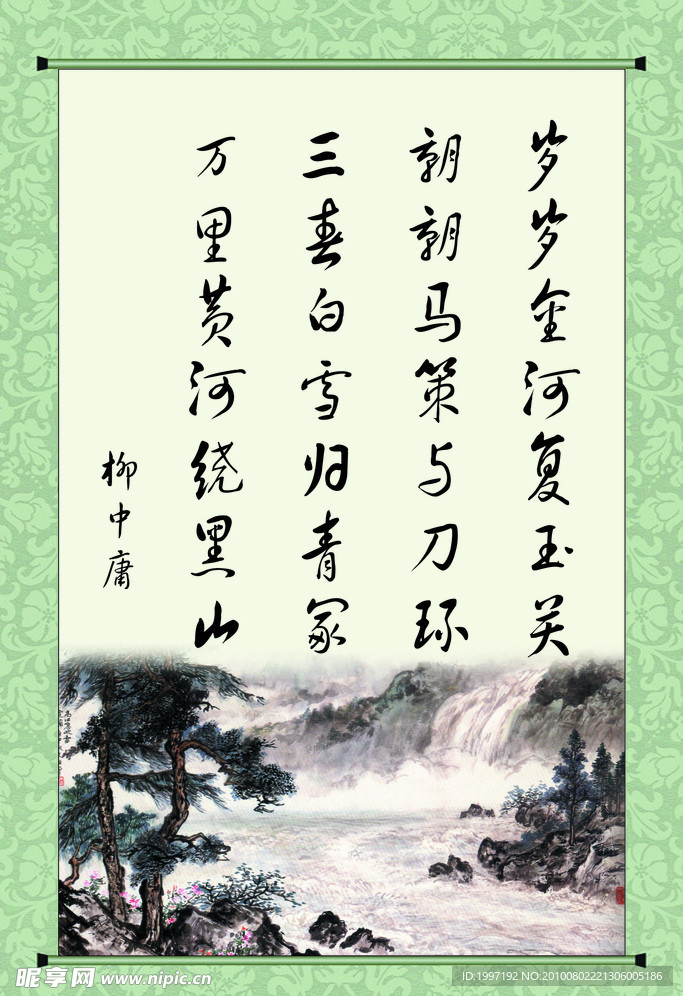 岁岁金河复玉关
朝朝马策与刀环
三春白雪归青冢
万里黄河绕黑山
柳中庸
昵享网 www.nipic.cn
ID:1997192 NO:20100802221306005186